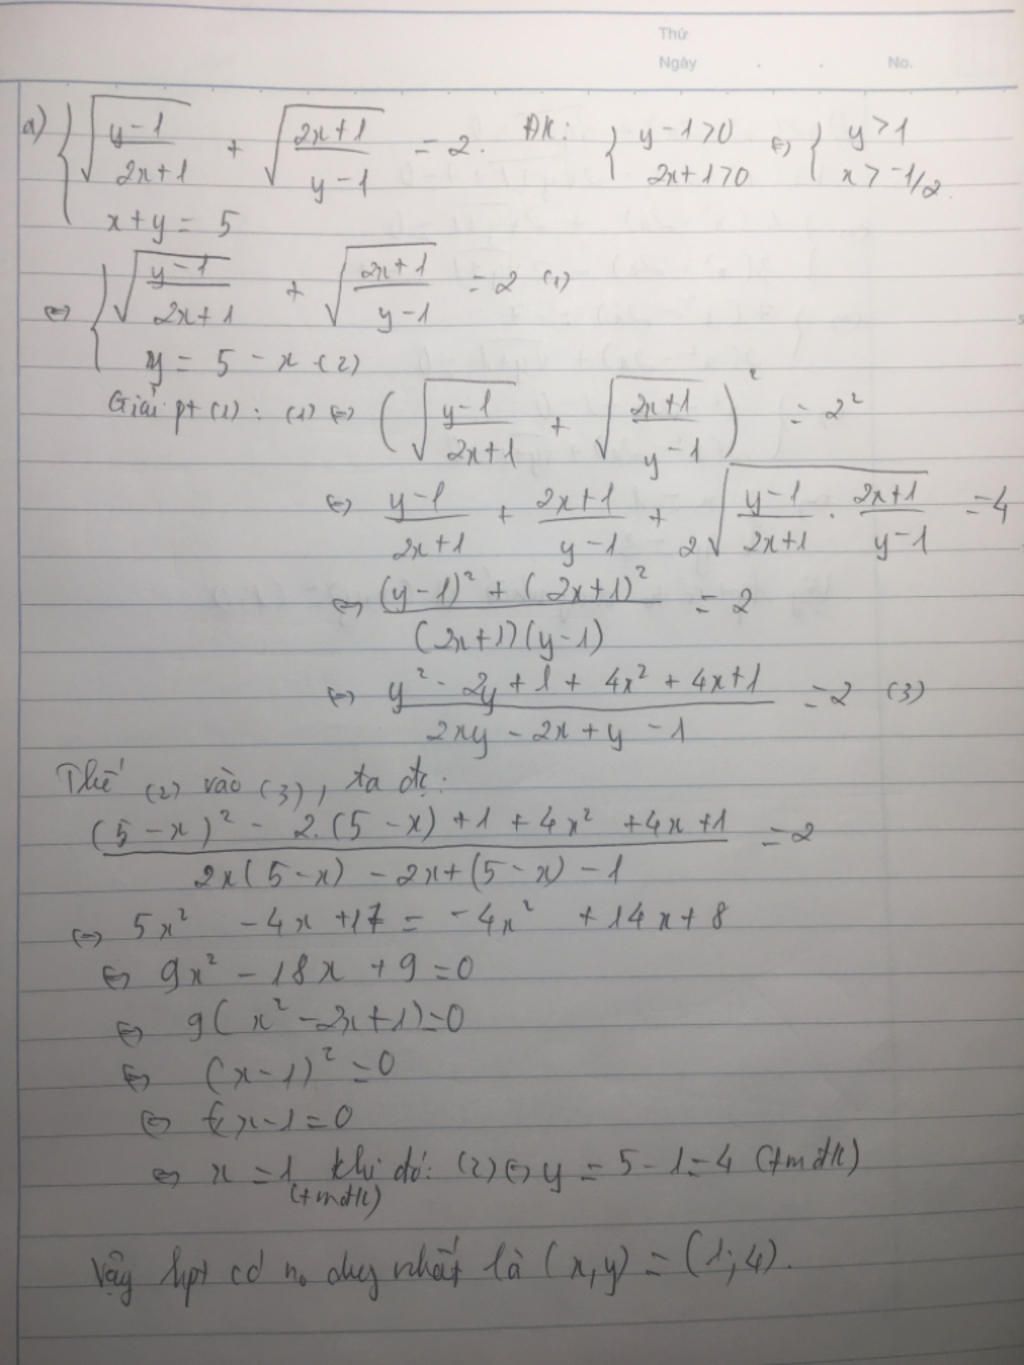 Thứ
Ngày . . No.
a) { √((y-1)/(2x+1)) + √((2x+1)/(y-1)) = 2. ĐK: { y-1>0 ⇔ { y>1
2x+1>0 x>-1/2
x+y = 5
⇔ { √((y-1)/(2x+1)) + √((2x+1)/(y-1)) = 2 (1)
y = 5 - x (2)
Giải pt (1): (1) ⇔ (√((y-1)/(2x+1)) + √((2x+1)/(y-1)))² = 2²
⇔ (y-1)/(2x+1) + (2x+1)/(y-1) + 2√((y-1)/(2x+1) . (2x+1)/(y-1)) = 4
⇔ ((y-1)² + (2x+1)²)/((2x+1)(y-1)) = 2
⇔ (y² - 2y + 1 + 4x² + 4x+1)/(2xy - 2x + y - 1) = 2 (3)
Thế (2) vào (3), ta đc:
((5-x)² - 2.(5-x) + 1 + 4x² + 4x+1)/(2x(5-x) - 2x+(5-x) - 1) = 2
⇔ 5x² - 4x + 17 = -4x² + 14x + 8
⇔ 9x² - 18x + 9 = 0
⇔ 9(x² - 2x+1)=0
⇔ (x-1)² = 0
⇔ x-1=0
⇔ x = 1 khi đó: (2) ⇔ y = 5-1=4 (tmđk)
(tmđk)
Vậy hpt có no duy nhất là (x,y) = (1;4).